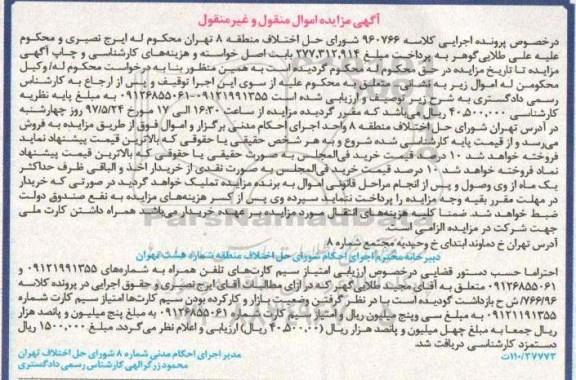 آگهی مزایده اموال منقول و غیرمنقول
درخصوص پرونده اجرایی کلاسه ۹۶۰۷۶۶ شورای حل اختلاف منطقه ۸ تهران محکوم له ایرج نصیری و محکوم
علیه علی طلایی گوهر به پرداخت مبلغ ۲۷۷,۳۱۲,۹۱۴ بابت اصل خواسته و هزینه‌های کارشناسی و چاپ آگهی
مزایده تا تاریخ مزایده در حق محکوم له محکوم گردیده است به همین منظور بنا به درخواست محکوم له/وکیل
محکوم له اموال زیر به نشانی متعلق به محکوم علیه از سوی این اجرا توقیف و پس از ارجاع به کارشناس
رسمی دادگستری به شرح زیر توصیف و ارزیابی شده است ۰۹۱۲۱۹۹۱۳۵۵-۰۹۱۲۶۸۵۵۰۶۱ به مبلغ پایه نظریه
کارشناسی ۴۰,۵۰۰,۰۰۰ ریال می‌باشد که مقرر گردیده مزایده از ساعت ۱۶:۳۰ الی ۱۷ مورخ ۹۷/۵/۲۴ روز چهارشنبه
در آدرس تهران شورای حل اختلاف منطقه ۸ واحد اجرای احکام مدنی برگزار و اموال فوق از طریق مزایده به فروش
می‌رسد و از قیمت پایه کارشناسی شده شروع و به هر شخص حقیقی یا حقوقی که بالاترین قیمت پیشنهاد نماید
فروخته خواهد شد ۱۰ درصد قیمت خرید فی‌المجلس به صورت حقیقی یا حقوقی که بالاترین قیمت پیشنهاد
نماد فروخته خواهد شد ۱۰ درصد قیمت خرید فی‌المجلس به صورت نقدی از خریدار اخذ و الباقی ظرف حداکثر
یک ماه از وی وصول و پس از انجام مراحل قانونی اموال به برنده مزایده تملیک خواهد گردید در صورتی که خریدار
در مهلت مقرر بقیه وجه مزایده را پرداخت ننماید سپرده وی پس از کسر هزینه‌های مزایده به نفع صندوق دولت
ضبط خواهد شد ضمنا کلیه هزینه‌های انتقال مورد مزایده بر عهده خریدار می‌باشد همراه داشتن کارت ملی
جهت شرکت در مزایده الزامی است
آدرس تهران خ دماوند ابتدای خ وحیدیه مجتمع شماره ۸
دبیرخانه محترم اجرای احکام شورای حل اختلاف منطقه شماره هشت تهران
احتراما حسب دستور قضایی درخصوص ارزیابی امتیاز سیم کارت‌های تلفن همراه به شماره‌های ۰۹۱۲۱۹۹۱۳۵۵ و
۰۹۱۲۶۸۵۵۰۶۱ متعلق به آقای مجید طلایی گهر که در ازای مطالبات آقای ایرج نصیری و حقوق اجرایی در پرونده کلاسه
۷۶۶/۹۶ ش ح بازداشت گردیده است با در نظر گرفتن وضعیت بازار و کارکرده بودن سیم کارت‌ها امتیاز سیم کارت شماره
۰۹۱۲۱۹۹۱۳۵۵ به مبلغ سی و پنج میلیون ریال و امتیاز سیم کارت شماره ۰۹۱۲۶۸۵۵۰۶۱ به مبلغ پنج میلیون و پانصد هزار
ریال جمعا به مبلغ چهل میلیون و پانصد هزار ریال (۴۰,۵۰۰,۰۰۰ ریال) ارزیابی و اعلام نظر می‌گردد. مبلغ ۱,۵۰۰,۰۰۰ ریال
دستمزد کارشناسی دریافت شد.
مدیر اجرای احکام مدنی شماره ۸ شورای حل اختلاف تهران
محمود زرگر الهی کارشناس رسمی دادگستری
۱۱۰/۲۷۷۷۳ت
ParsNamadData